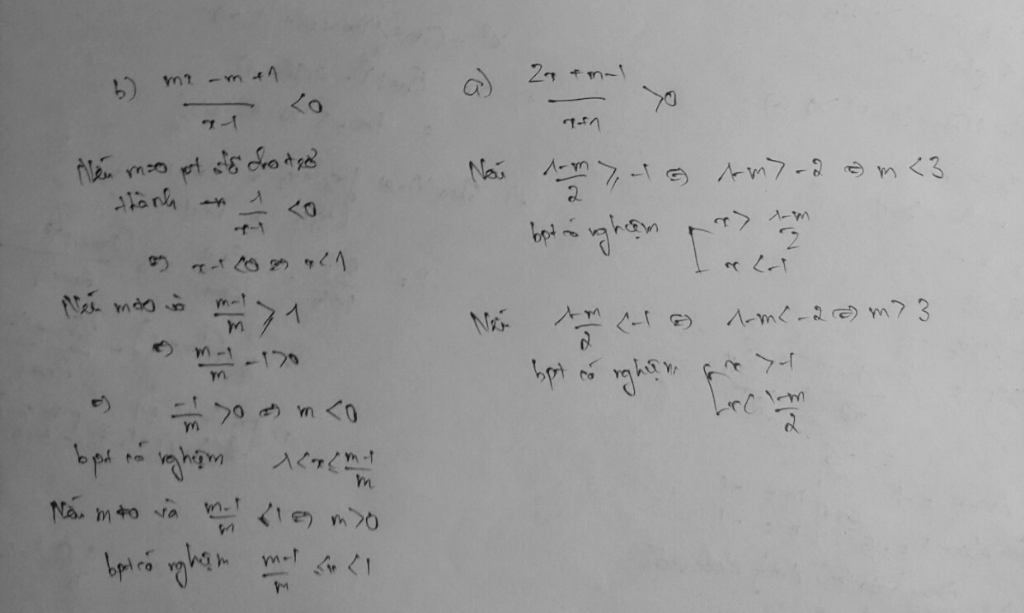 b) \frac{mx - m + 1}{x - 1} < 0
Nếu m=0 pt đã cho trở
thành \frac{1}{x-1} < 0
⇔ x-1 < 0 ⇔ x < 1
Nếu m≠0 và \frac{m-1}{m} > 1
⇔ \frac{m-1}{m} - 1 > 0
⇔ \frac{-1}{m} > 0 ⇔ m < 0
bpt có nghiệm 1 < x ≤ \frac{m-1}{m}
Nếu m≠0 và \frac{m-1}{m} < 1 ⇔ m > 0
bpt có nghiệm \frac{m-1}{m} ≤ x < 1
a) \frac{2x + m - 1}{x + 1} > 0
Nếu \frac{1-m}{2} ≥ -1 ⇔ 1-m > -2 ⇔ m < 3
bpt có nghiệm [ x > \frac{1-m}{2}
x < -1
Nếu \frac{1-m}{2} < -1 ⇔ 1-m < -2 ⇔ m > 3
bpt có nghiệm [ x > -1
x < \frac{1-m}{2}